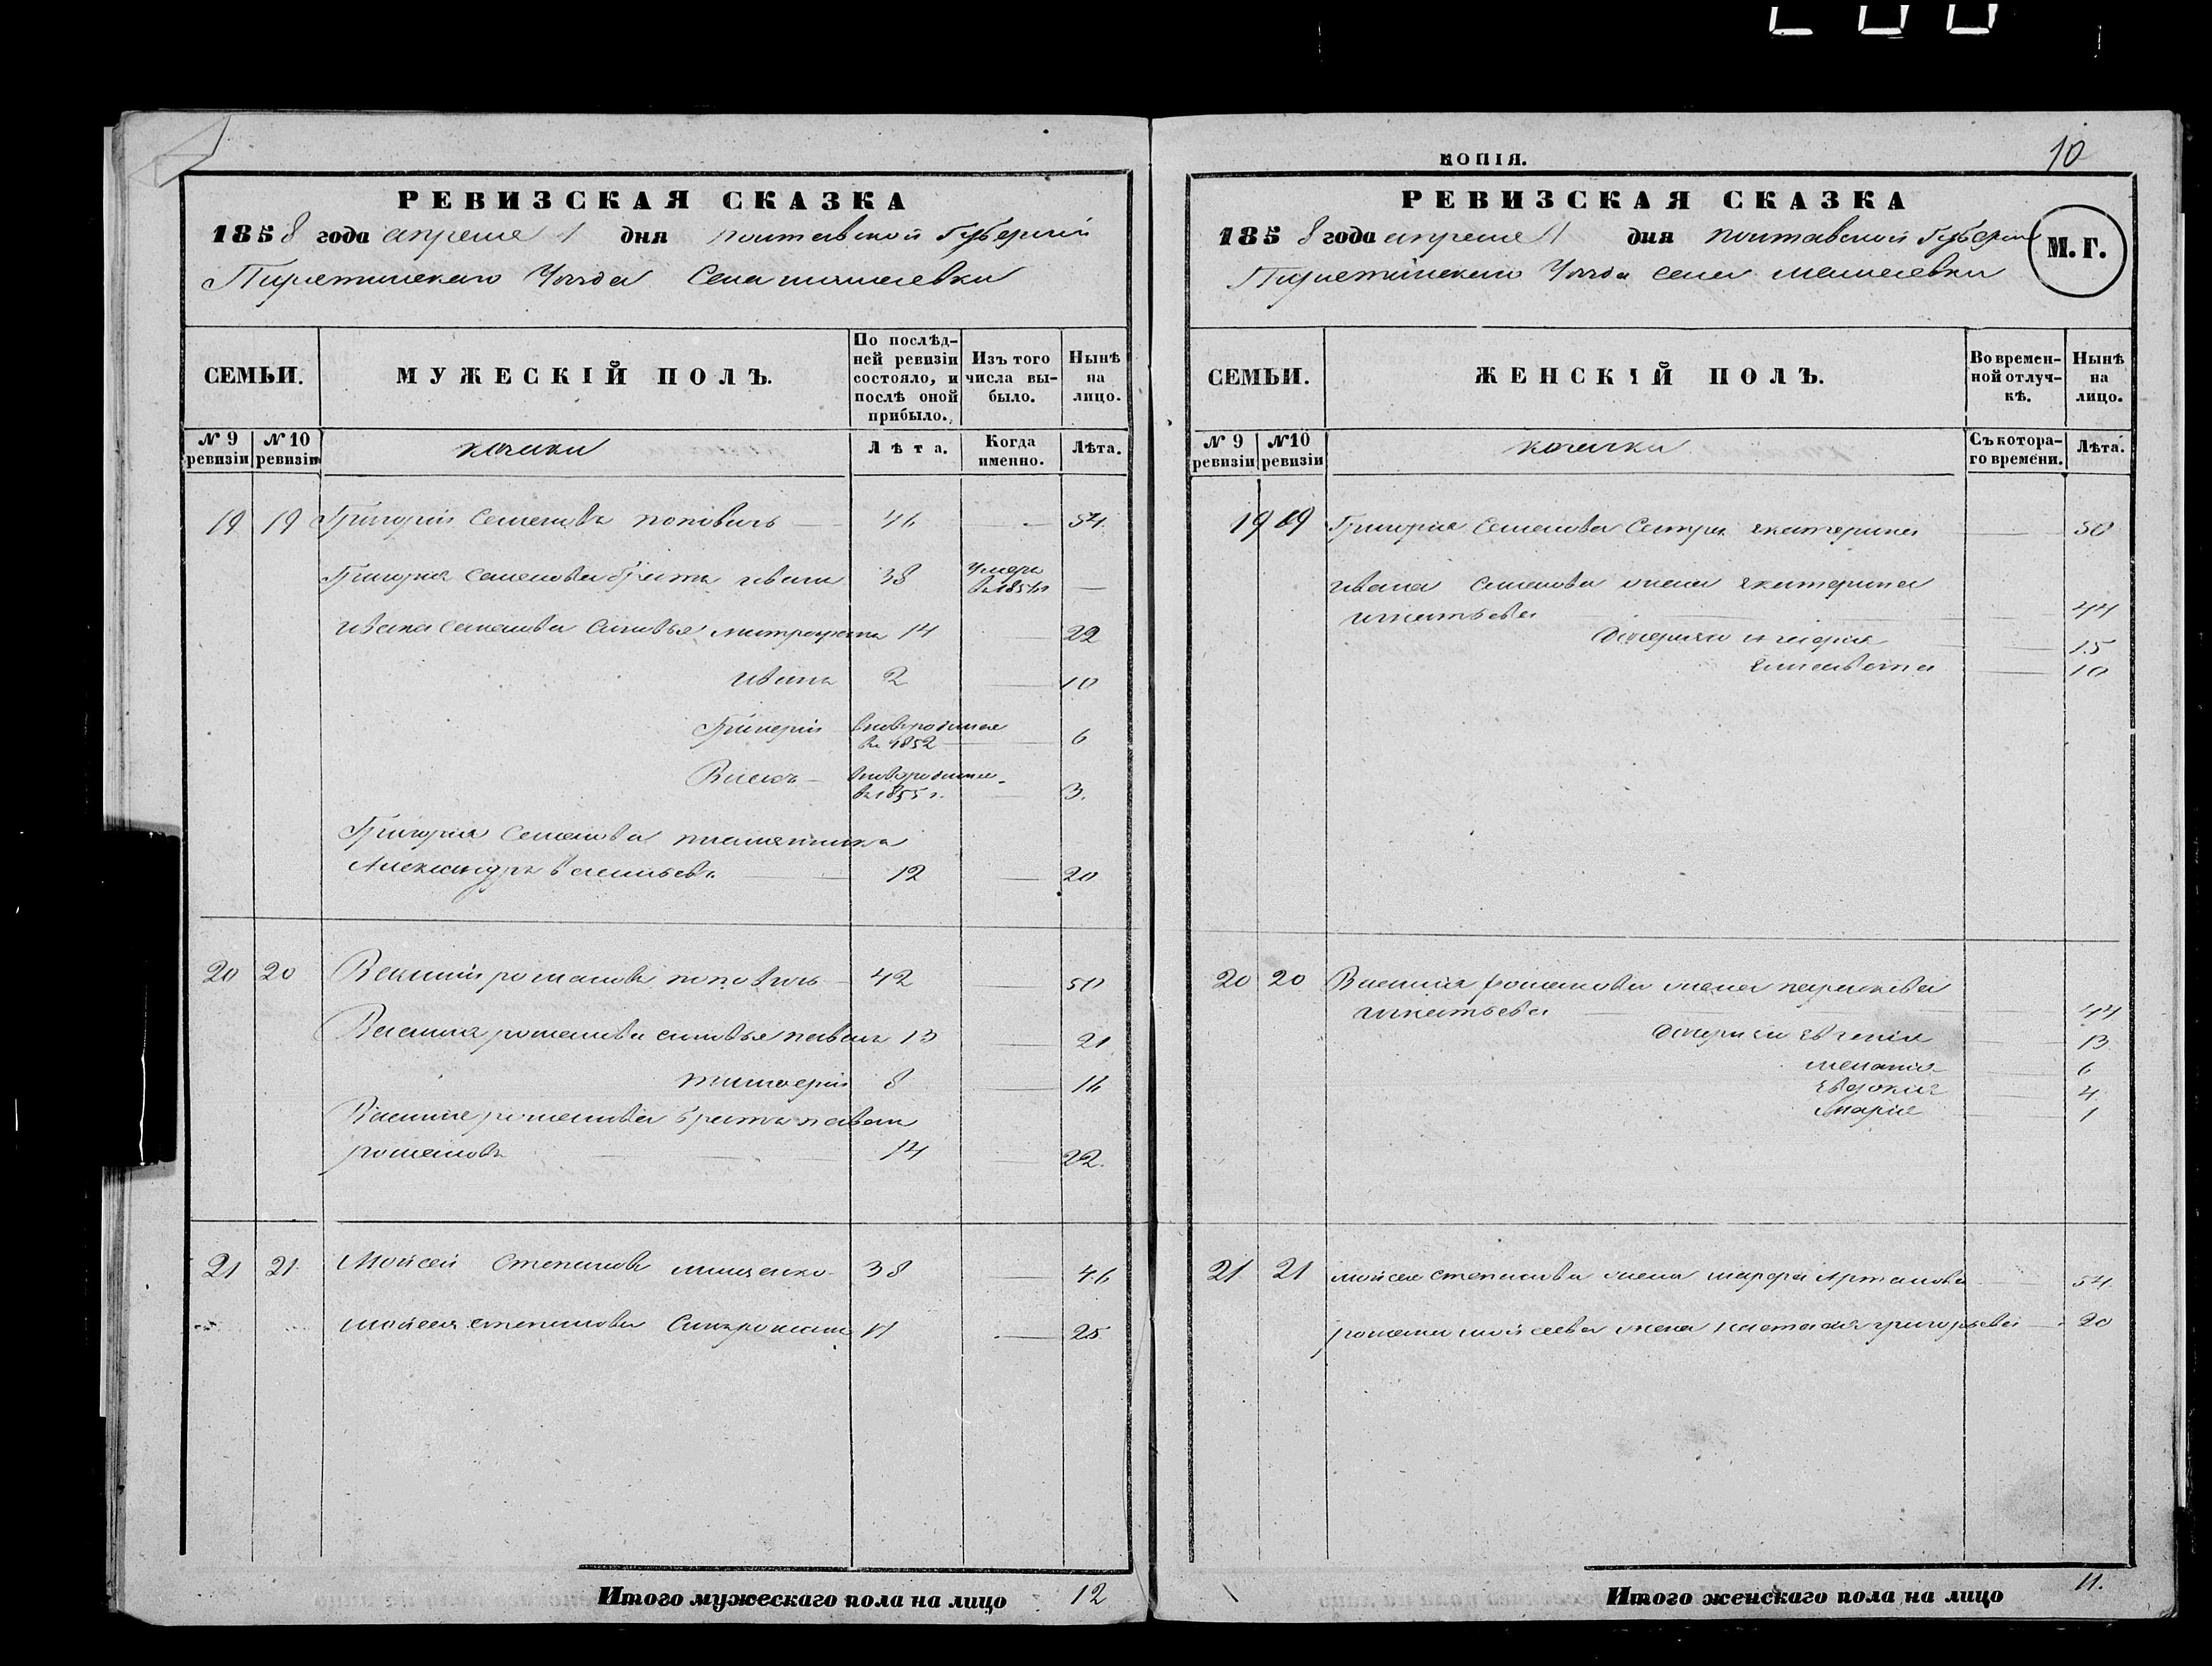 РЕВИЗСКАЯ СКАЗКА
1858 года апреля 1 дня Полтавской Губерніи
Пирятинскаго Уезда Села
СЕМЬИ.
МУЖЕСКІЙ ПОЛЪ.
По послѣд-
ней ревизіи
состояло, и
послѣ оной
прибыло.
Изъ того
числа вы-
было.
Нынѣ
на
лицо.
№ 9
ревизіи
№ 10
ревизіи
казаки
Лѣта.
Когда
именно.
Лѣта.
19 19 Григорій Семеновъ Поповичь 46 — 54.
Григорія Семенова братъ Иванъ 38 умеръ —
Ивана Семенова сыновья Митрофанъ 14 — 22
Иванъ 2 — 10
Григорій вновьрожденъ
въ 1852 — 6
вновьрожденъ
въ 1855 г. — 3.
Григорія Семенова племянникъ
Александръ Васильевъ — 12 — 20
20 20 Василій Романовъ Поповичь 42 — 50
Василія Романова сыновья Павелъ 13 — 21
Тимофей 8 — 16
Василія Романова братъ Павелъ
Романовъ — 14 — 22.
21 21 Мойсей Степановъ Мищенко 38 — 46
Мойсея Степанова сынъ Романъ 17 — 25
Итого мужескаго пола на лицо 12
КОПІЯ.
10
РЕВИЗСКАЯ СКАЗКА
1858 года апреля 1 дня Полтавской Губерніи
Пирятинскаго Уезда села
М. Г.
СЕМЬИ.
ЖЕНСКІЙ ПОЛЪ.
Во времен-
ной отлуч-
кѣ.
Нынѣ
на
лицо.
№ 9
ревизіи
№10
ревизіи
казачки
Съ котора-
го времени.
Лѣта.
19 19 Григорія Семенова сестра Екатерина — 50
Ивана Семенова жена Екатерина
Игнатьева — 44
дочери Марія — 15
Елисавета — 10
20 20 Василія Романова жена Параскева
Игнатьева — 44
дочери Евгенія — 13
Меланія — 6
Евдокія — 4
Марія — 1
21 21 Мойсея Степанова жена Марфа Артамонова — 54.
Романа Мойсеева жена Настасия Григорьева — 20
Итого женскаго пола на лицо 11.